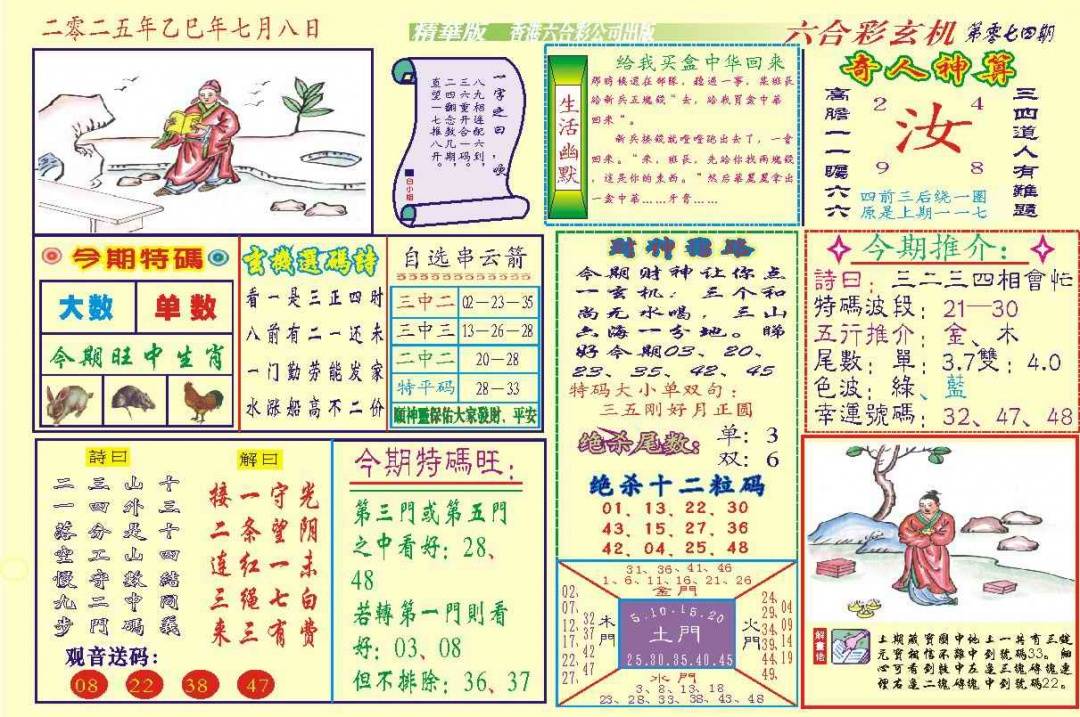 二零二五年乙巳年七月八日
精華版 香港六合彩公司出版
六合彩玄机 第零七四期
一字之曰:
八九相连配六到,
三六重开合一码。
二四翻念数九期,
直望一七推八开。
白小姐
生活幽默
给我买盒中华回来
那时候还在部队,
回来"。
新兵接钱就噔噔跑出去了,一会
回来。"来,班长,先给你找两块钱
,这是你的东西。"然后
一盒中华……牙膏……
奇人神算
高膽一一矚六六
2 4
汝
9 8
三四道人有難題
四前三后绕一圈
原是上期一一七
今期特碼
大数 单数
今期旺中生肖
玄機選碼詩
看一是三正四时
八前有二一还未
一门勤劳能发家
水涨船高不二价
自选串云箭
三中二 02—23—35
三中三 13—26—28
二中二 20—28
特平码 28—33
順神靈保佑大家發財、平安
今期财神让你点
一玄机:三个和
尚无水喝,三山
六海一分地。睇
好今期03、20、
23、35、42、45
特码大小单双句:
三五刚好月正圆
绝杀尾数: 单:3
双:6
绝杀十二粒码
01、13、22、30
43、15、27、36
42、04、25、48
今期推介:
詩曰:三二三四相會忙
特碼波段:21—30
五行推介:金、木
尾數:單:3.7雙:4.0
色波:綠、藍
幸運號碼:32、47、48
詩曰
十三十四結同義
山外是山數中碼
三四分工守二門
二一落空慢九步
解曰
光阴未白费
守望一七有
一条红绳三
接二连三来
观音送码:
08 22 38 47
今期特碼旺:
第三門或第五門
之中看好:28、
48
若轉第一門則看
好:03、08
但不排除:36、37
31、36、41、46
1、6、11、16、21、26
金門
02、07、12、17、22、27、
32、37、42、47
木門
5.10.15.20
土門
25.30.35.40.45
火門
24、29、34、39、44、49
04、09、14、19
水門
3、8、13、18
23、28、33、38、43、48
解畫佬
上期藏寶圖中地上一共有三錠
元寶相信不難中到號碼33。細
心可看到
徑右邊二塊磚塊中到號碼22。